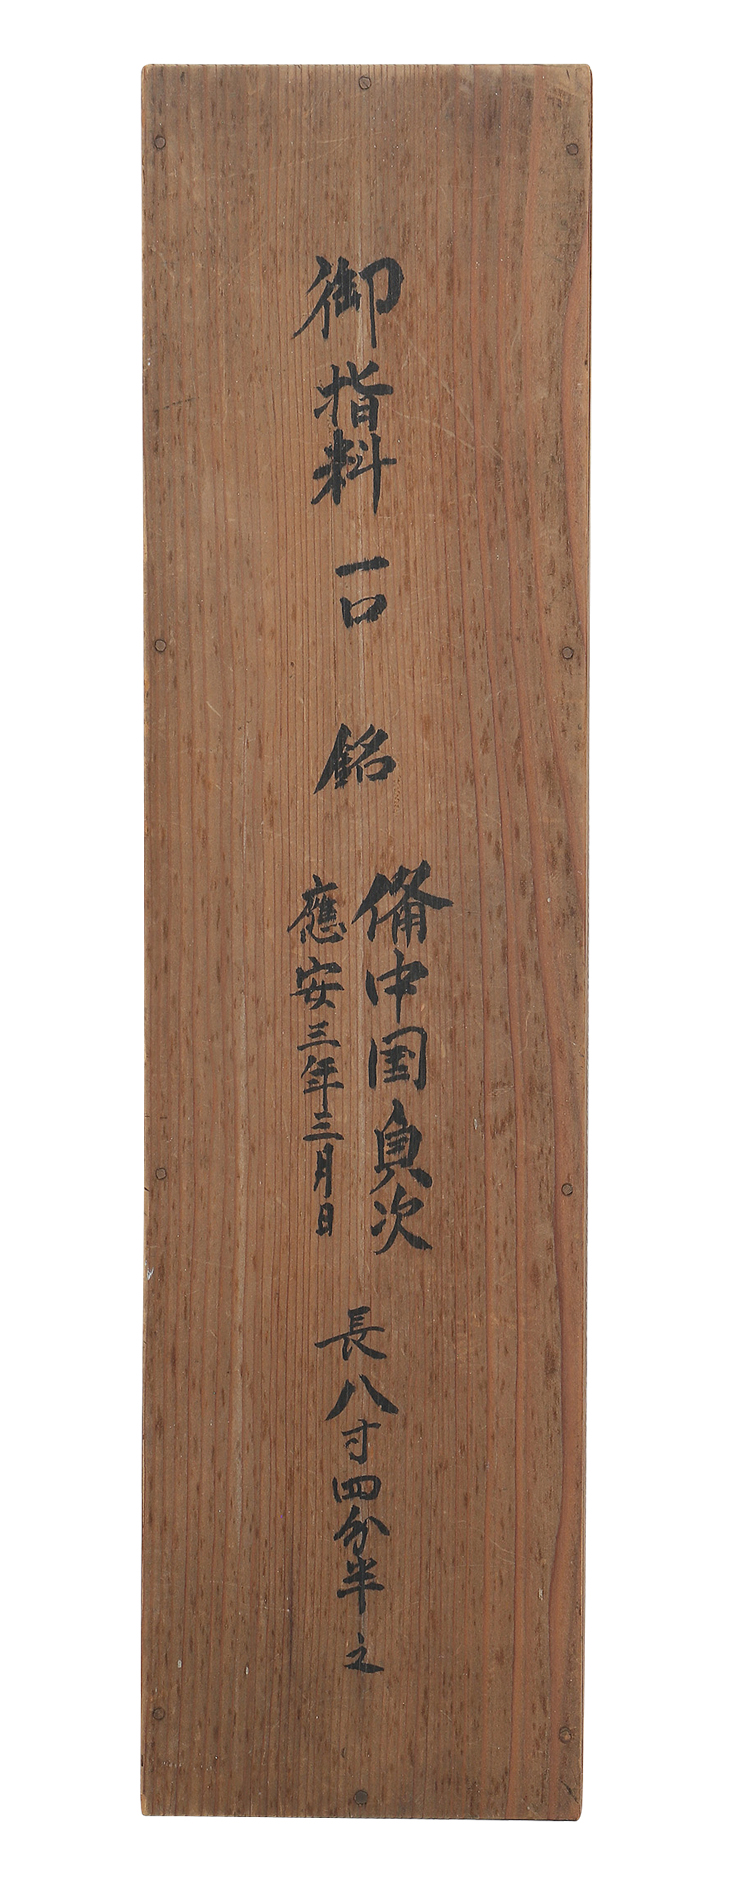 御指料 一口 銘
備中国貞次
應安三年三月日
長八寸四分半之